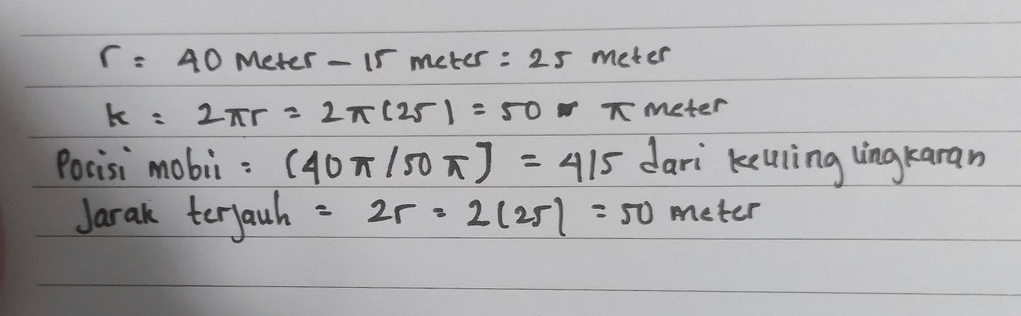 r = 40 Meter - 15 meter = 25 meter
k = 2πr = 2π(25) = 50 π meter
Posisi mobil = (40π/50π) = 4/5 dari keliling lingkaran
Jarak terjauh = 2r = 2(25) = 50 meter